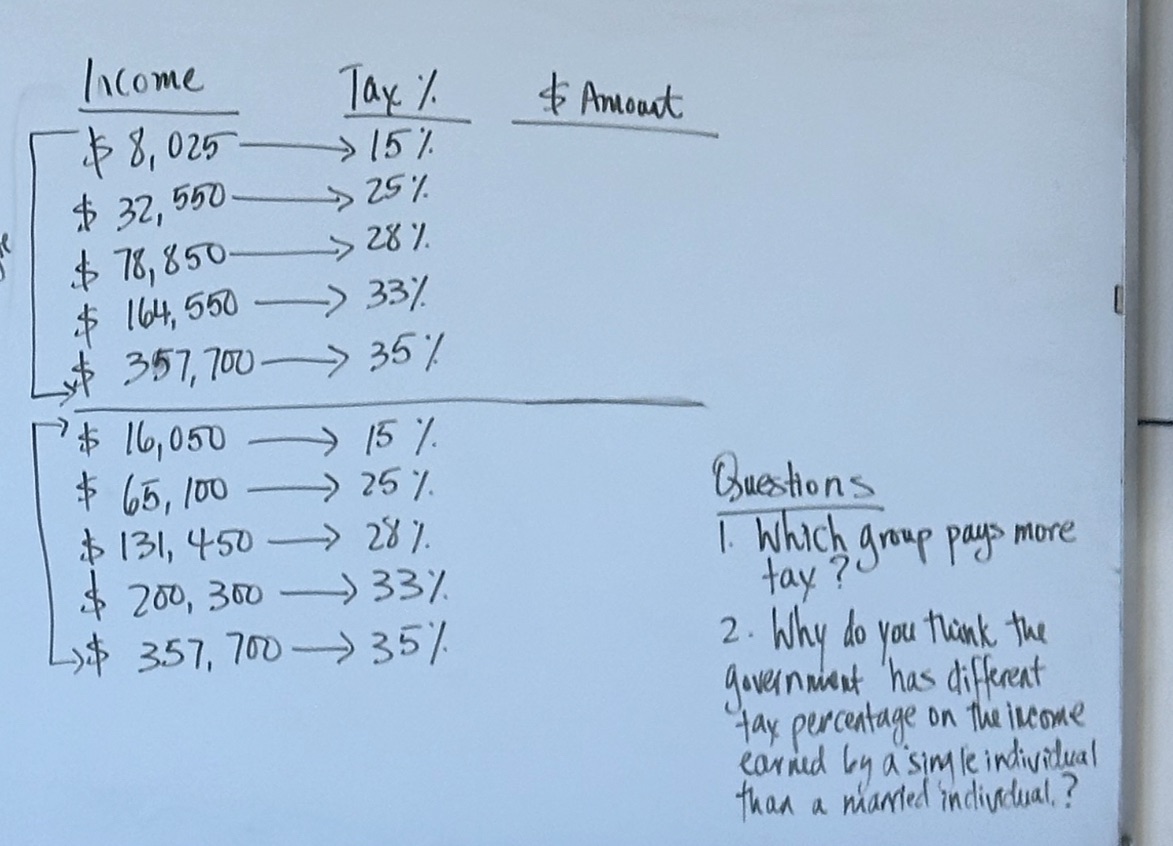 Income Tax % $ Amount
$ 8,025 → 15%
$ 32,550 → 25%
$ 78,850 → 28%
$ 164,550 → 33%
$ 357,700 → 35%
$ 16,050 → 15%
$ 65,100 → 25%
$ 131,450 → 28%
$ 200,300 → 33%
$ 357,700 → 35%
Questions
1. Which group pays more
tax?
2. Why do you think the
government has different
tax percentage on the income
earned by a single individual
than a married individual.?